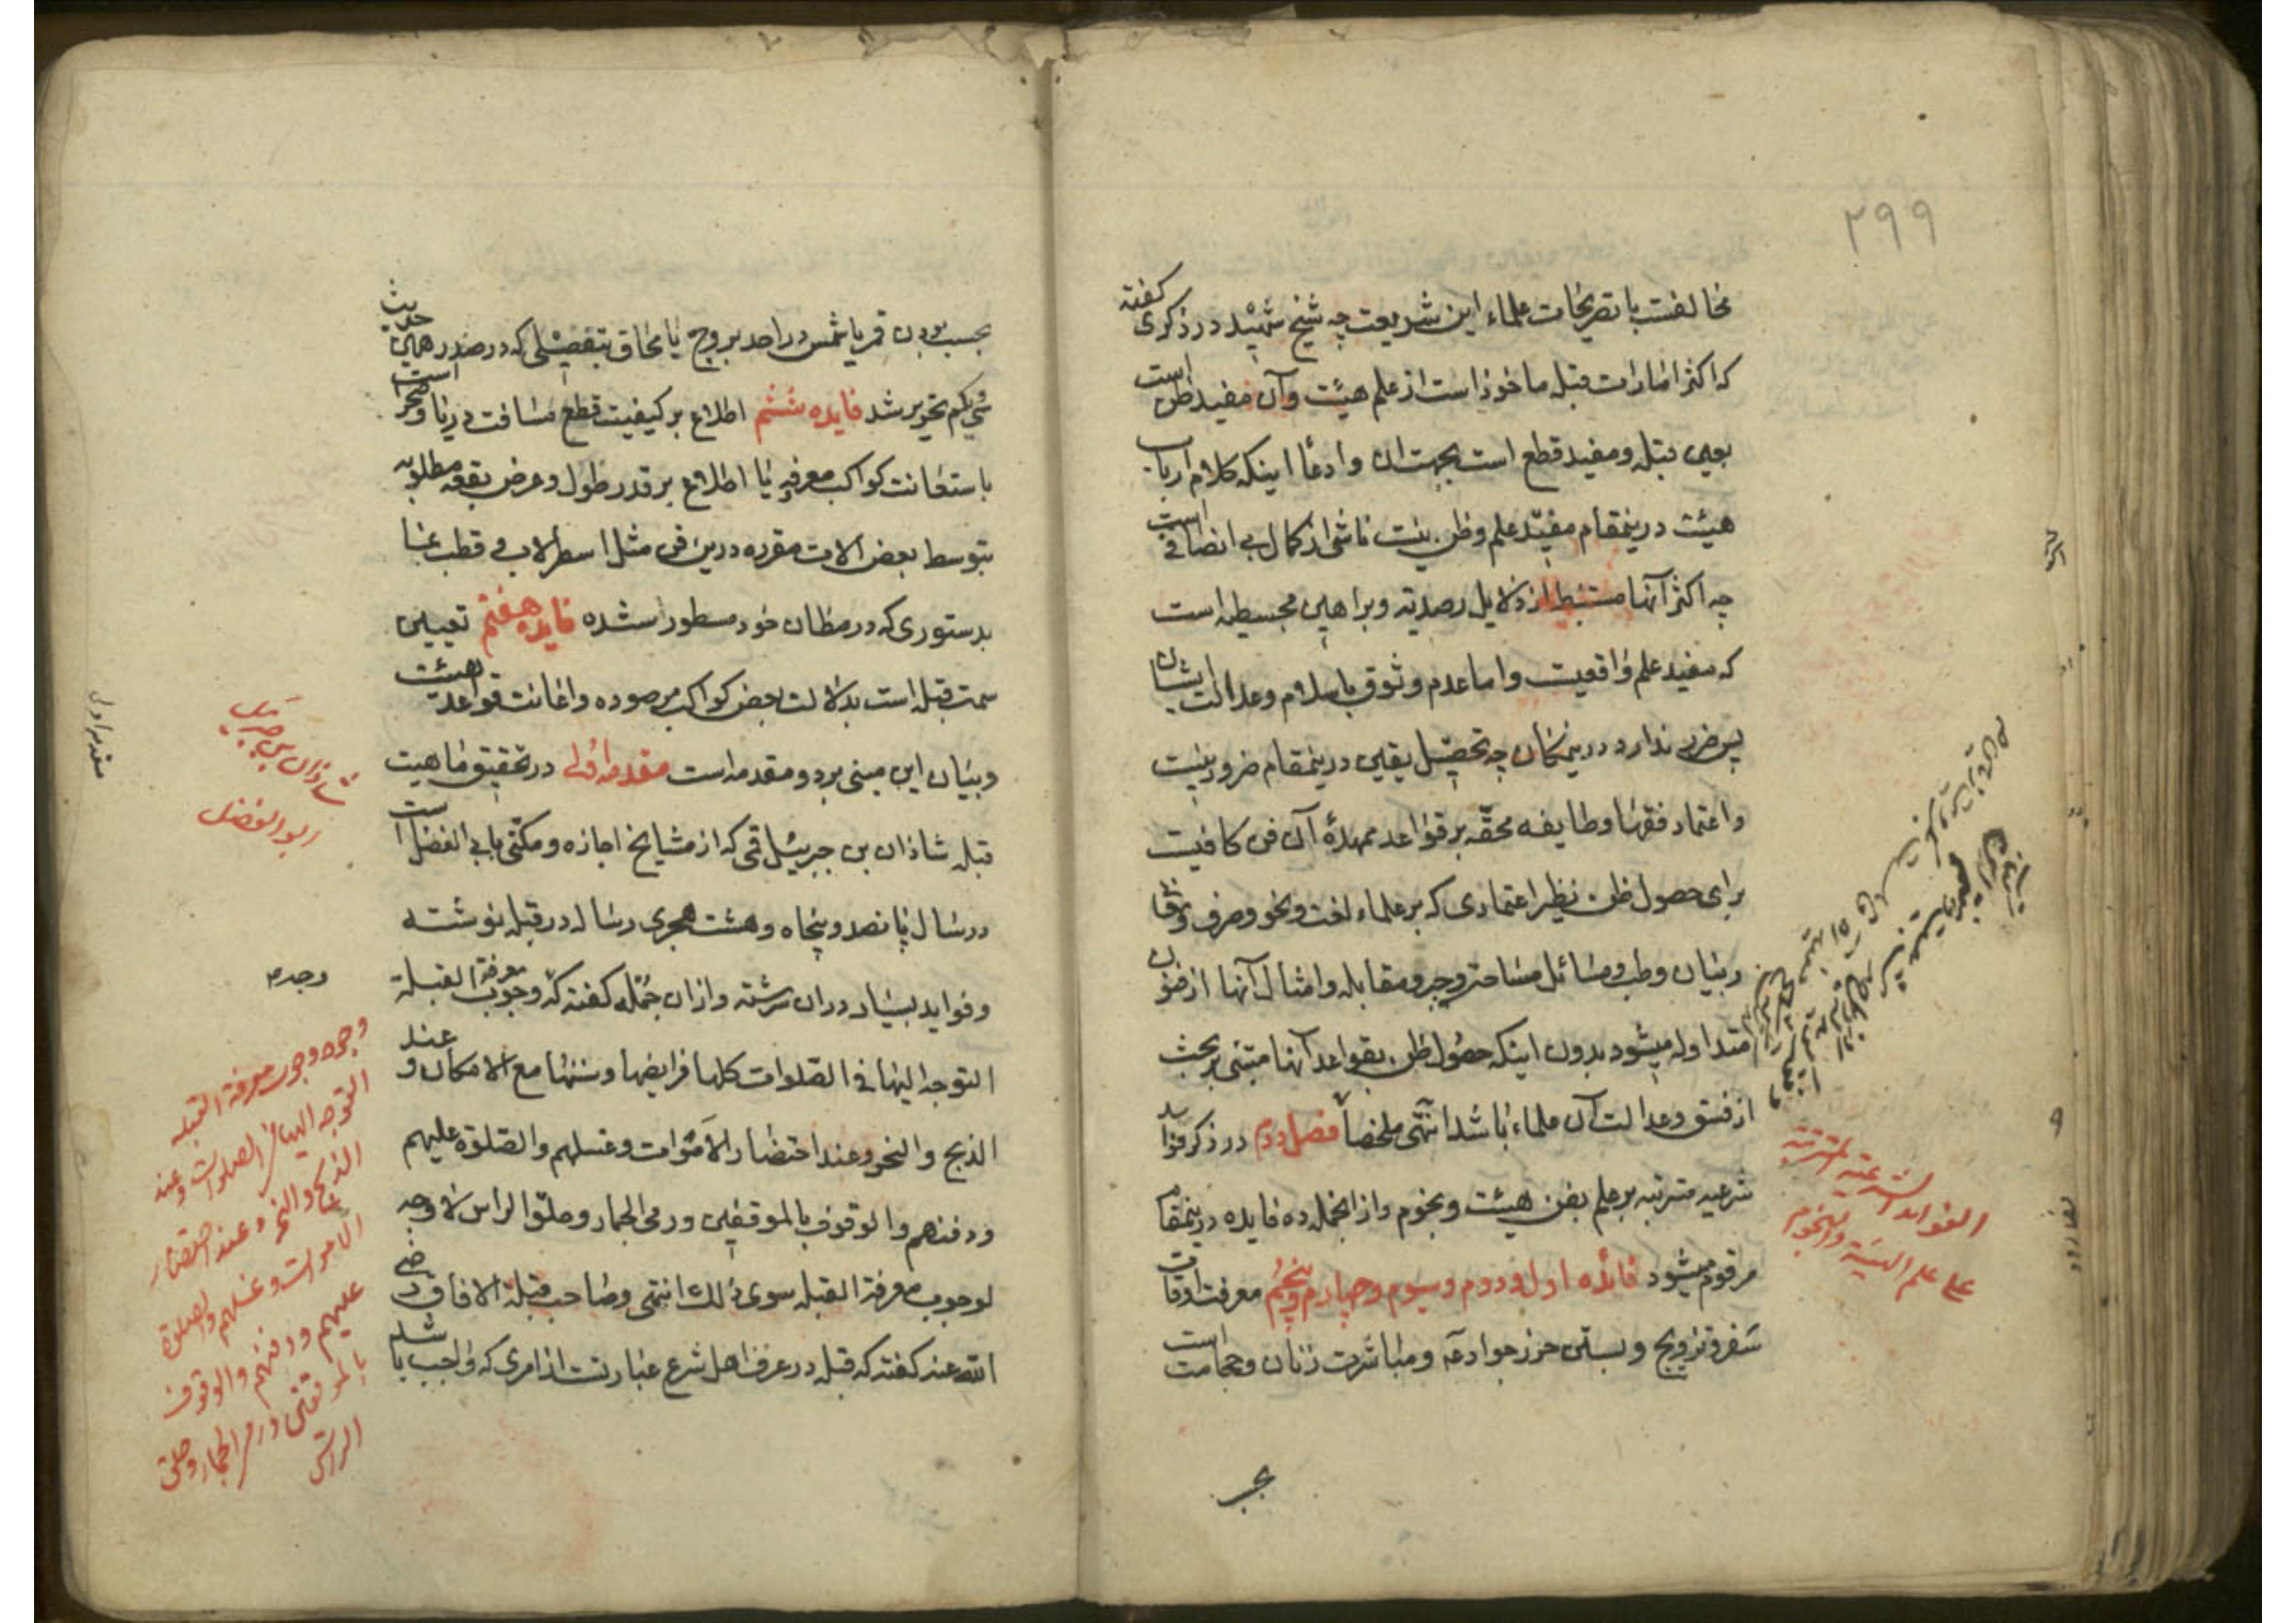 ۲۹۹
مخالفت با تصریحات علماء این شریعت چه شیخ شهید در ذکری گفته
که اکثر امارات قبله ماخوذ است از علم هیئت وآن مفید ظن است
بعین قبله ومفید قطع است بجهت ان وادعا اینکه کلام ارباب
هیئت درینمقام مفید علم وظن نیست ناشی از کمال بی انصافی است
چه اکثر آنها مستنبط از دلایل رصدیه وبراهین مجسطیه است
که مفید علم واقعیت واما عدم وثوق باسلام وعدالت ایشان
پس ضرری ندارد درینمکان چه تحصیل یقین درینمقام ضرور نیست
واعتماد فقها وطایفه محقه بر قواعد ممهدهٔ آن فن کافیست
برای حصول ظن نظیر اعتمادی که بر علماء لغت ونحو وصرف
وبیان وطب ومسائل مساحت وجبر ومقابله وامثال آنها از فنون
متداوله میشود بدون اینکه حصول ظن بقواعد آنها مبتنی بر بحث
از فسق وعدالت آن علماء باشد انتهی ملخصا فصل دوم در ذکر فواید
شرعیه مترتبه بر علم بفن هیئت ونجوم وازانجمله ده فایده درینمقام
مرقوم میشود فائده اول ودوم وسیوم وچهارم وپنجم معرفت اوقات
سفر وتزویج وبستن حرز جوادیه ومباشرت زنان وحجامت است
الفواید الشرعیة المترتبة
علی علم الهیئة والنجوم
بحسب بودن قمر یا شمس در احد بروج یا محاق بتفصیلی که در صدر همین حدیث
سی ویکم تحریر شد فایده ششم اطلاع بر کیفیت قطع مسافت دریا وصحرا است
باستعانت کواکب معرفه یا اطلاع بر قدر طول وعرض بقعه مطلوبه
بتوسط بعض الات مقرره درین فن مثل اسطرلاب وقطب نما
بدستوری که در مظان خود مسطور شده فایده هفتم تعیین
سمت قبله است بدلالت بعض کواکب مرصوده واعانت قواعد هیئت
وبیان این مبنی بر دو مقدمه است مقدمه اولی در تحقیق ماهیت
قبله شاذان بن جبرئیل قمی که از مشایخ اجازه ومکنی بابی الفضل است
در سال پانصد وپنجاه وهشت هجری رساله در قبله نوشته
وفواید بسیار دران سرشته وازان جمله گفته که وجوب معرفة القبلة
التوجه الیها فی الصلوات کلها فرایضها وسننها مع الامکان وعند
الذبح والنحر وعند احتضار الاموات وغسلهم والصلوة علیهم
ودفنهم والوقوف بالموقفین ورمی الجمار وحلق الراس لا وجه
لوجوب معرفة القبله سوی ذلک انتهی وصاحب قبلة الافاق رضی
الله عنه گفته که قبله در عرف اهل شرع عبارتست از امری که واجب باشد
مقدمه اول
شاذان بن جبریل
ابو الفضل
وجه
وجوه وجوب معرفة القبله
التوجه الیها فی الصلوات وعند
الذبح والنحر وعند احتضار
الاموات وغسلهم والصلوة
علیهم ودفنهم والوقوف
بالموقفین ورمی الجمار وحلق
الراس